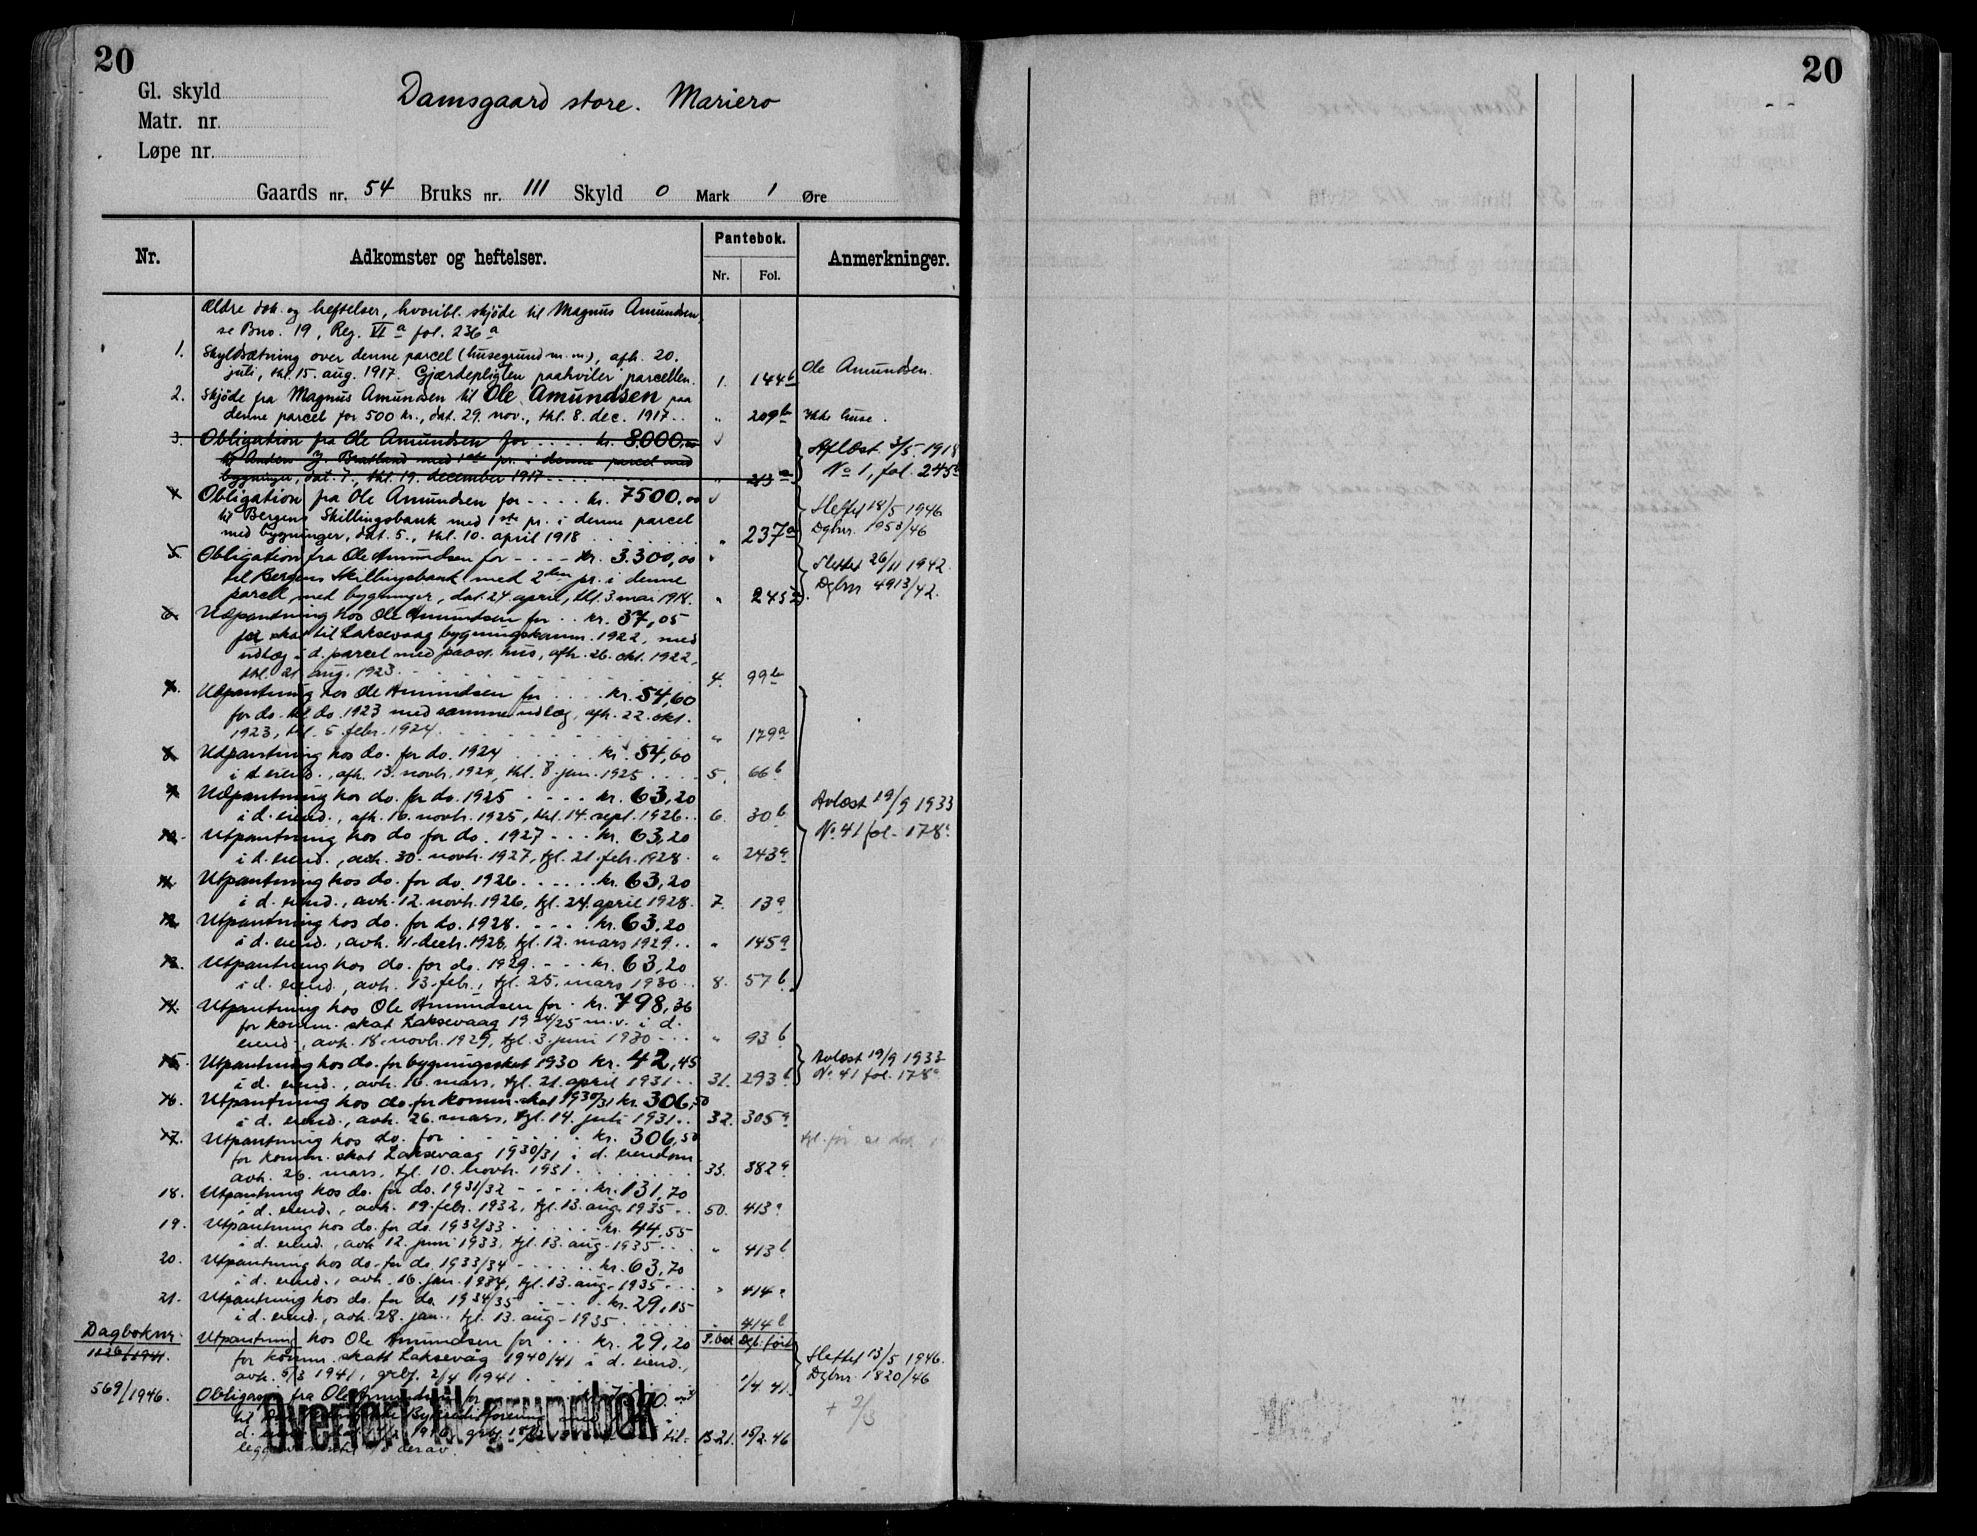 20
Gl. skyld
Matr. nr.
Løpe nr.
Damsgaard store. Mariero
Gaards nr. 54 Bruks nr. 111 Skyld 0 Mark 1 Øre
Nr. Adkomster og heftelser. Pantebok. Anmerkninger.
Nr. Fol.
Ældre dok. og heftelser, hvoribl. skjøde til Magnus Amundsen,
se Bno. 19, Reg. VI a fol. 236 a
1. Skyldsætning over denne parcel (husegrund m.m), afh. 20.
juli, thl. 15. aug. 1917. Gjærdepligten paahviler parcellen. 1. 144 b Ole Amundsen.
2. Skjøde fra Magnus Amundsen til Ole Amundsen paa
denne parcel for 500 kr., dat. 29. nov., thl. 8. dec. 1917. " 209 b Ikke huse.
3. Obligation fra Ole Amundsen for .... kr. 8.000,00
til Anders J. Bratland med 1ste pr. i denne parcel med Aflæst 3/5 1918
bygninger, dat. 7., thl. 19. december 1917 " 213 a No 1, fol. 245 a
4. Obligation fra Ole Amundsen for .... kr. 7500,00
til Bergens Skillingsbank med 1ste pr. i denne parcel Slettet 18/5 1946
med bygninger, dat. 5., thl. 10. april 1918 " 237 a Dgbnr. 1953/46
5. Obligation fra Ole Amundsen for .... kr. 3.300,00
til Bergens Skillingsbank med 2den pr. i denne Slettet 26/11 1942.
parcel med bygninger, dat. 24 april, thl. 3. mai 1918. " 245 Dgbnr 4913/42.
6. Utpantning hos Ole Amundsen for .. kr. 37,05
for skat til Laksevaag bygningskomm. 1922, med
utlæg i d. parcel med paast. hus, afh. 26. okt. 1922,
thl. 21 aug. 1923. 4. 99 b
7. Utpantning hos Ole Amundsen for .... kr. 54,60
for do. til do. 1923 med samme utlæg, afh. 22. okt.
1923, thl. 5. febr. 1924. " 179 a
8. Utpantning hos do. for do. 1924 .... kr. 54,60
i d. eiend., afh. 13. novbr. 1924, thl. 8. jan. 1925 5. 66 b
9. Utpantning hos do. for do. 1925 .... kr. 63,20 Avlæst 19/9 1933
i d. eiend., afh. 16. novbr. 1925, thl. 14. sept. 1926. 6. 30 b No. 41 fol. 178 a
10. Utpantning hos do for do. 1927 ... kr. 63,20
i d. eiend., avh. 30. novbr. 1927, tgl. 21. febr. 1928. " 243 a
11. Utpantning hos do. for do. 1926 ..... kr. 63,20
i d. eiend., avh. 12. novbr. 1926, tgl. 24. april 1928. 7. 13 a
12. Utpantning hos do. for do. 1928. .... kr. 63,20
i d. eiend., avh. 11. decbr. 1928, tgl. 12. mars 1929.. " 145 a
13. Utpantning hos do. for do. 1929. ... kr. 63,20
i d. eiend., avh. 13. febr., tgl. 25. mars 1930.. 8. 57 b
14. Utpantning hos Ole Amundsen for . kr. 798,36
for komm. skat Laksevaag 1924/25 m.v. i d.
eiend., avh. 18. novbr. 1929, tgl. 3. juni 1930 ... " 93 b
15. Utpantning hos do. for bygningsskat 1930 kr. 42,45 Avlæst 19/9 1933
i d. eiend., avh. 16. mars, tgl. 21. april 1931.. 31. 293 b No. 41 fol. 178 a
16. Utpantning hos do. for komm. skat 1930/31 kr. 306,50
i d. eiend., avh. 26. mars, tgl. 14. juli 1931.. 32. 305 a
17. Utpantning hos do. for ...... kr. 306,50 tgl. før se dok.
for komm. skat Laksevaag 1930/31 i d. eiendom
avh. 26. mars, tgl. 10. novbr. 1931. 33. 382 a
18. Utpantning hos do. for do. 1931/32 ..... kr. 131,70
i d. eiend., avh. 19. febr. 1932, tgl. 13. aug. 1935.. 50. 413 a
19. Utpantning hos do. for do. 1932/33 ...... kr. 44,55
i d. eiend., avh. 12. juni 1933, tgl. 13. aug. 1935.. " 413 b
20. Utpantning hos do. for do. 1933/34 ...... kr. 63,70
i d. eiend., avh. 16. jan. 1934, tgl. 13. aug. 1935... " 414 a
21. Utpantning hos do. for do. 1934/35 ..... kr. 29,15
i d. eiend., avh. 28. jan., tgl. 13. aug. 1935..... " 414 b
Dagboknr. Utpantning hos Ole Amundsen for ... kr. 29,20 Dgb. ført
1126/1941. for komm. skatt Laksevåg 1940/41 i d. eiend., Slettet 13/5 1946.
avh. 5/3 1941, grbf. 2/4 1941 1/4.41. Dgbnr. 1820/46
569/1946. Obligasjon fra Ole Amundsen for
Overført til grunnbok
B.21. 15/2.46
20